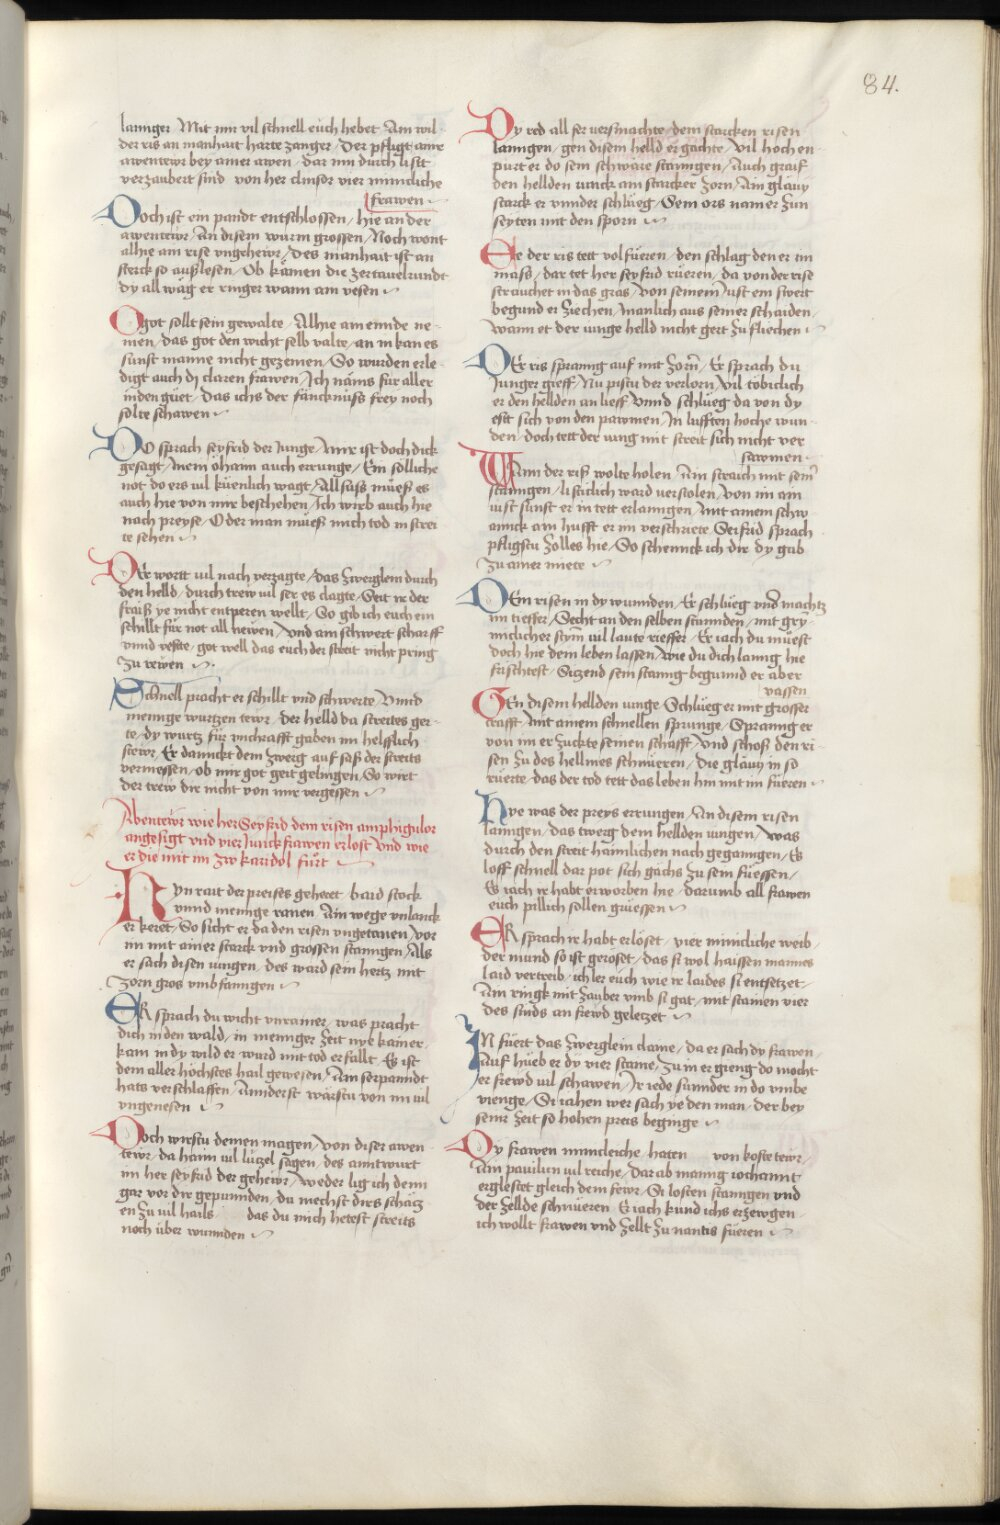 84.
lannger Mit im vil schnell eüch hebet Am wil
der ris an manhait harte zanger / Der pfligt ame
awentewr bey ainer awen / dar inn durch listt
verzaubert sind von her clinsor vier minicliche
frawen
Doch ist ein pandt entschlossen / hie an der
awentewr / An disem wurm grossen / Noch wont
alhie am rise vngehewr / Des manhait ist an
sterck so auszlesen / Ob kämen die zer tauelrundt
dy all wäg er ringer wann am vesen
O got sollt sein gewalte / Alhie am ennde ne
men / das got den wicht selb valte / an in kan es
sünst manne nicht gezemen / So wurden erle
digt auch dj claren frawen / Ich näms für aller
inden güet / Das ichs der fäncknüss frey noch
solte schawen
DO sprach seyfrid der Junge / Mir ist doch dick
gesagt / mein öhaim auch errunge / Ein sölliche
not do ers vil küenlich wagt / All süss müess es
auch hie von mir beschehen / Ich wirb auch hie
nach preyse / Oder man müess mich tod in strei
te sehen
DEr wortt vil nach verzagte / das Zwerglein durch
den helld / durch trew vil ser es clagte / Seit ir der
fraiss ye nicht entperen wellt / So gib ich euch ein
schillt für not all newen / Vnd am schwert scharff
vnnd vesste / got well das euch der streit nicht pring
zu rewen
Schnell pracht er schillt vnd schwerte / Vnnd
mennge wurtzen tewr / der helld da streites ger
te / dy wurtz für vnchrafft gaben im helfflich
stewr / Er danckt dem Zwerg auf sass der streits
vermessen / ob mir got geit gelingen / So wirt
der trew dir nicht von mir vergessen
Abentewr wie her Seyfrid dem risen amphigulor
angesigt vnd vier Junckfrawen erlost vnd wie
er die mit im zw karidol fürt
HYn rait der preises geheret / hard stock
vnnd mennge ranen / Am wege vnlanck
er keret / So sicht er da den risen vngetanen / vor
im mit ainer starck vnd grossen stanngen / Als
er sach disen iungen / des ward sein hertz mit
zorn gros vmbfanngen
ER sprach du wicht vnrainer / was pracht
dich in den wald / in menniger zeit nye kainer
kam in dy wild er wurd mit tod erfallt / Es ist
dem aller höchstes hail gewesen / Am serpanndt
hats verschlaffen / Annderst wärstu von im vil
vngenesen
Doch wirstu deinen magen / von diser awen
tewr / da haim vil lützel sagen / des anttwurt
im her seyfrid der gehewr / weder lig ich denn
gar vor dir gepunnden / du mechst dirs schätz
en zu vil hails das du mich hetest streits
noch über wunnden
Dy red all ser versmachte / dem starcken risen
lanngen / gen disem helld er gachte / Vil hoch en
purt er do sein schwäre stanngen / Auch graif
den hellden iunck am starcker zorn / Am glauy
starck er vnnder schlueg / Sein ors nam er zun
seyten mit den sporn
Ee der ris tett volfüeren / den schlag den er im
mass / dar tet her seyfrid rüeren / da von der rise
strauchet in das gras / von seinem iust ein swert
begund er ziechen / manlich aus seiner schaiden
wann et der iunge helld nicht gert zu fliechen
DEr ris spranng auf mit zorn / Er sprach du
Junger gieff / Nu pistu der verlorn / Vil töbiclich
er den hellden an lieff Vnnd schlueg da von dy
esst sich von den pawmen / In lufften hoche wun
den / doch tett der iung mit streit sich nicht ver
sawmen
WAnn der riss wolte holen / Am straich mit sein
stanngen / listiclich ward verstolen / Von im am
iust sünst er in tett erlanngen / mit ainem schw
annck am hufft er im verschriete Seifrid sprach
pfligstu zolles hie / So schennck ich dir dy gab
zu ainer miete
DEm risen in dy wunnden / Er schlueg vnd machtz
im tieffer / Secht an den selben stunnden / mit gry
miclicher stym vil laute rieffer / Er iach du muest
doch hie dem leben lassen / wie du dich lanng hie
fristtest / Sizend sein stanng begunnd er aber
vassen
GEn disem hellden iunge Schlueg er mit grosser
crafft / Mit ainem schnellen sprunge / Spranng er
von im er zuckte seinen schafft / Vnd schoss den ri
sen zu des hellmes schnüeren / die glauy in so
rüerte / das der tod tett das leben hin mit im füeren
Hye was der preys errungen / An disem risen
lanngen / das twerg dem hellden iungen / was
durch den streit haimlichen nach geganngen / Es
loff schnell dar pot sich gächs zu sein füessen /
Es iach ir habt erworben hie / darumb all frawen
euch pillich sollen grüessen
ER sprach ir habt erlöset / vier minicliche weib
der mund so ist geroset / das si wol haissen mannes
laid vertreib / ich ler euch wie ir laides si entsetzet
Am ringk mit zauber vmb si gat / mit stainen vier
des sinds an frewd geletzet
IN füert das zwerglein dame / da er sach dy frawen
Auf hueb er dy vier staine / Zu in er gieng do mocht
er frewd vil schawen / Ir iede sunnder in do vmbe
vienge / Si iahen wer sach ye den man / der bey
seinr zeit so hohen preis beginge
Dy frawen minnicleiche / haten von koste tewr
Am pauilun vil reiche / dar ab manig iochannt
erglestet gleich dem fewr / Si losten stanngen vnd
der zellde schnüeren / Er iach kund ichs erzewgen
ich wollt frawen vnd zellt zu nantis füeren